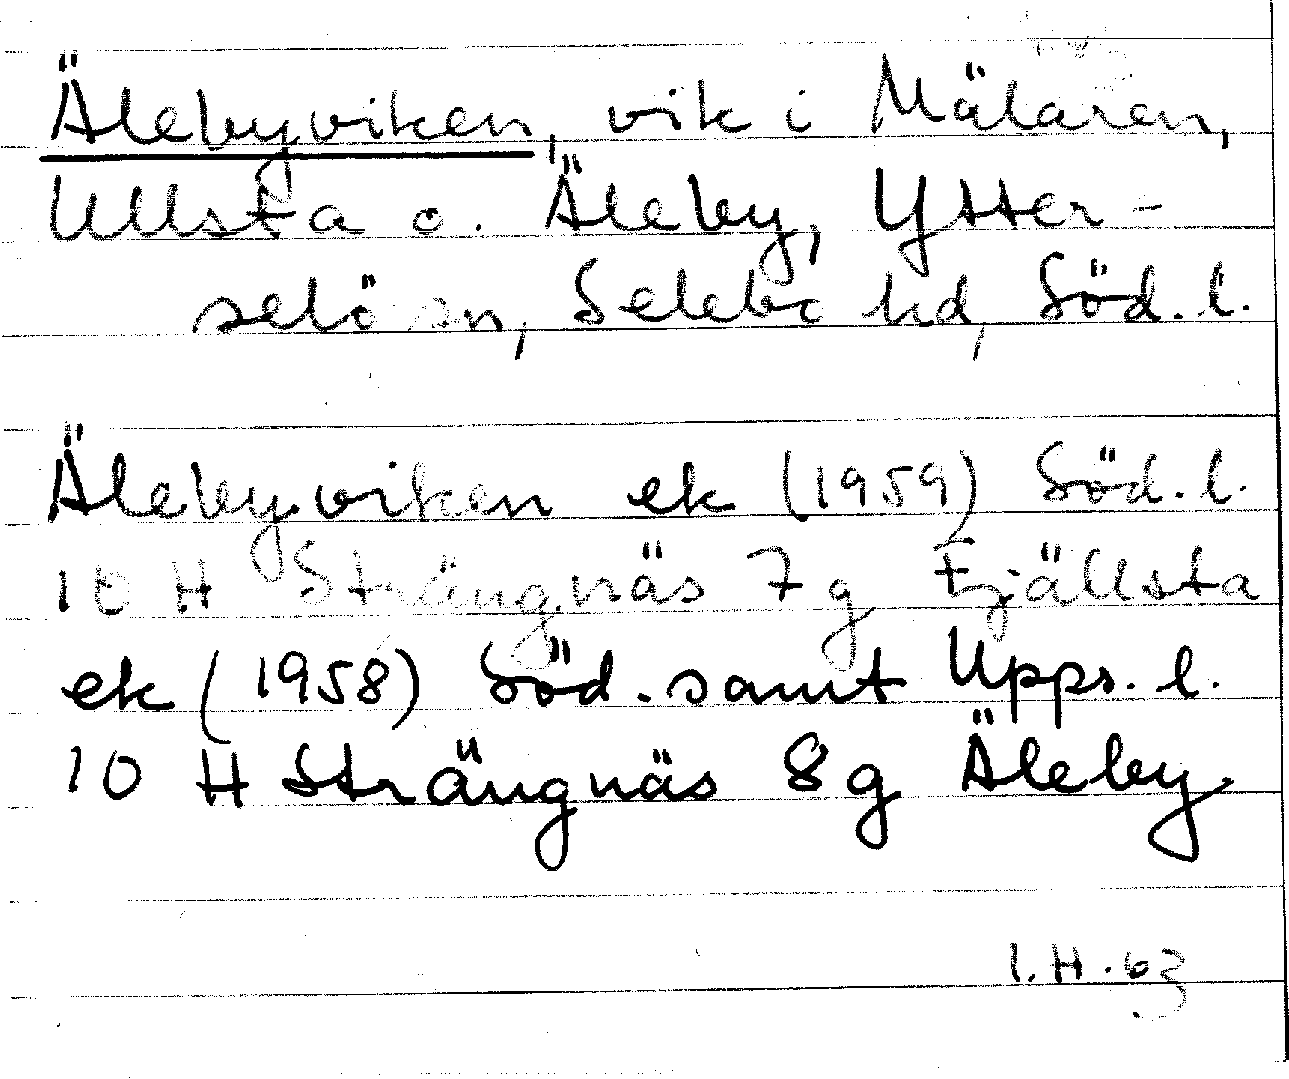 Älebyviken, vik i Mälaren,
Ullsta o. Äleby, Ytter-
selö sn, Selebo hd, Söd. l.
Älebyviken ek (1959) Söd. l.
10 H Strängnäs 7 g Fjällsta
ek (1958) Söd. samt Upps. l.
10 H Strängnäs 8 g Äleby
I. H. 63